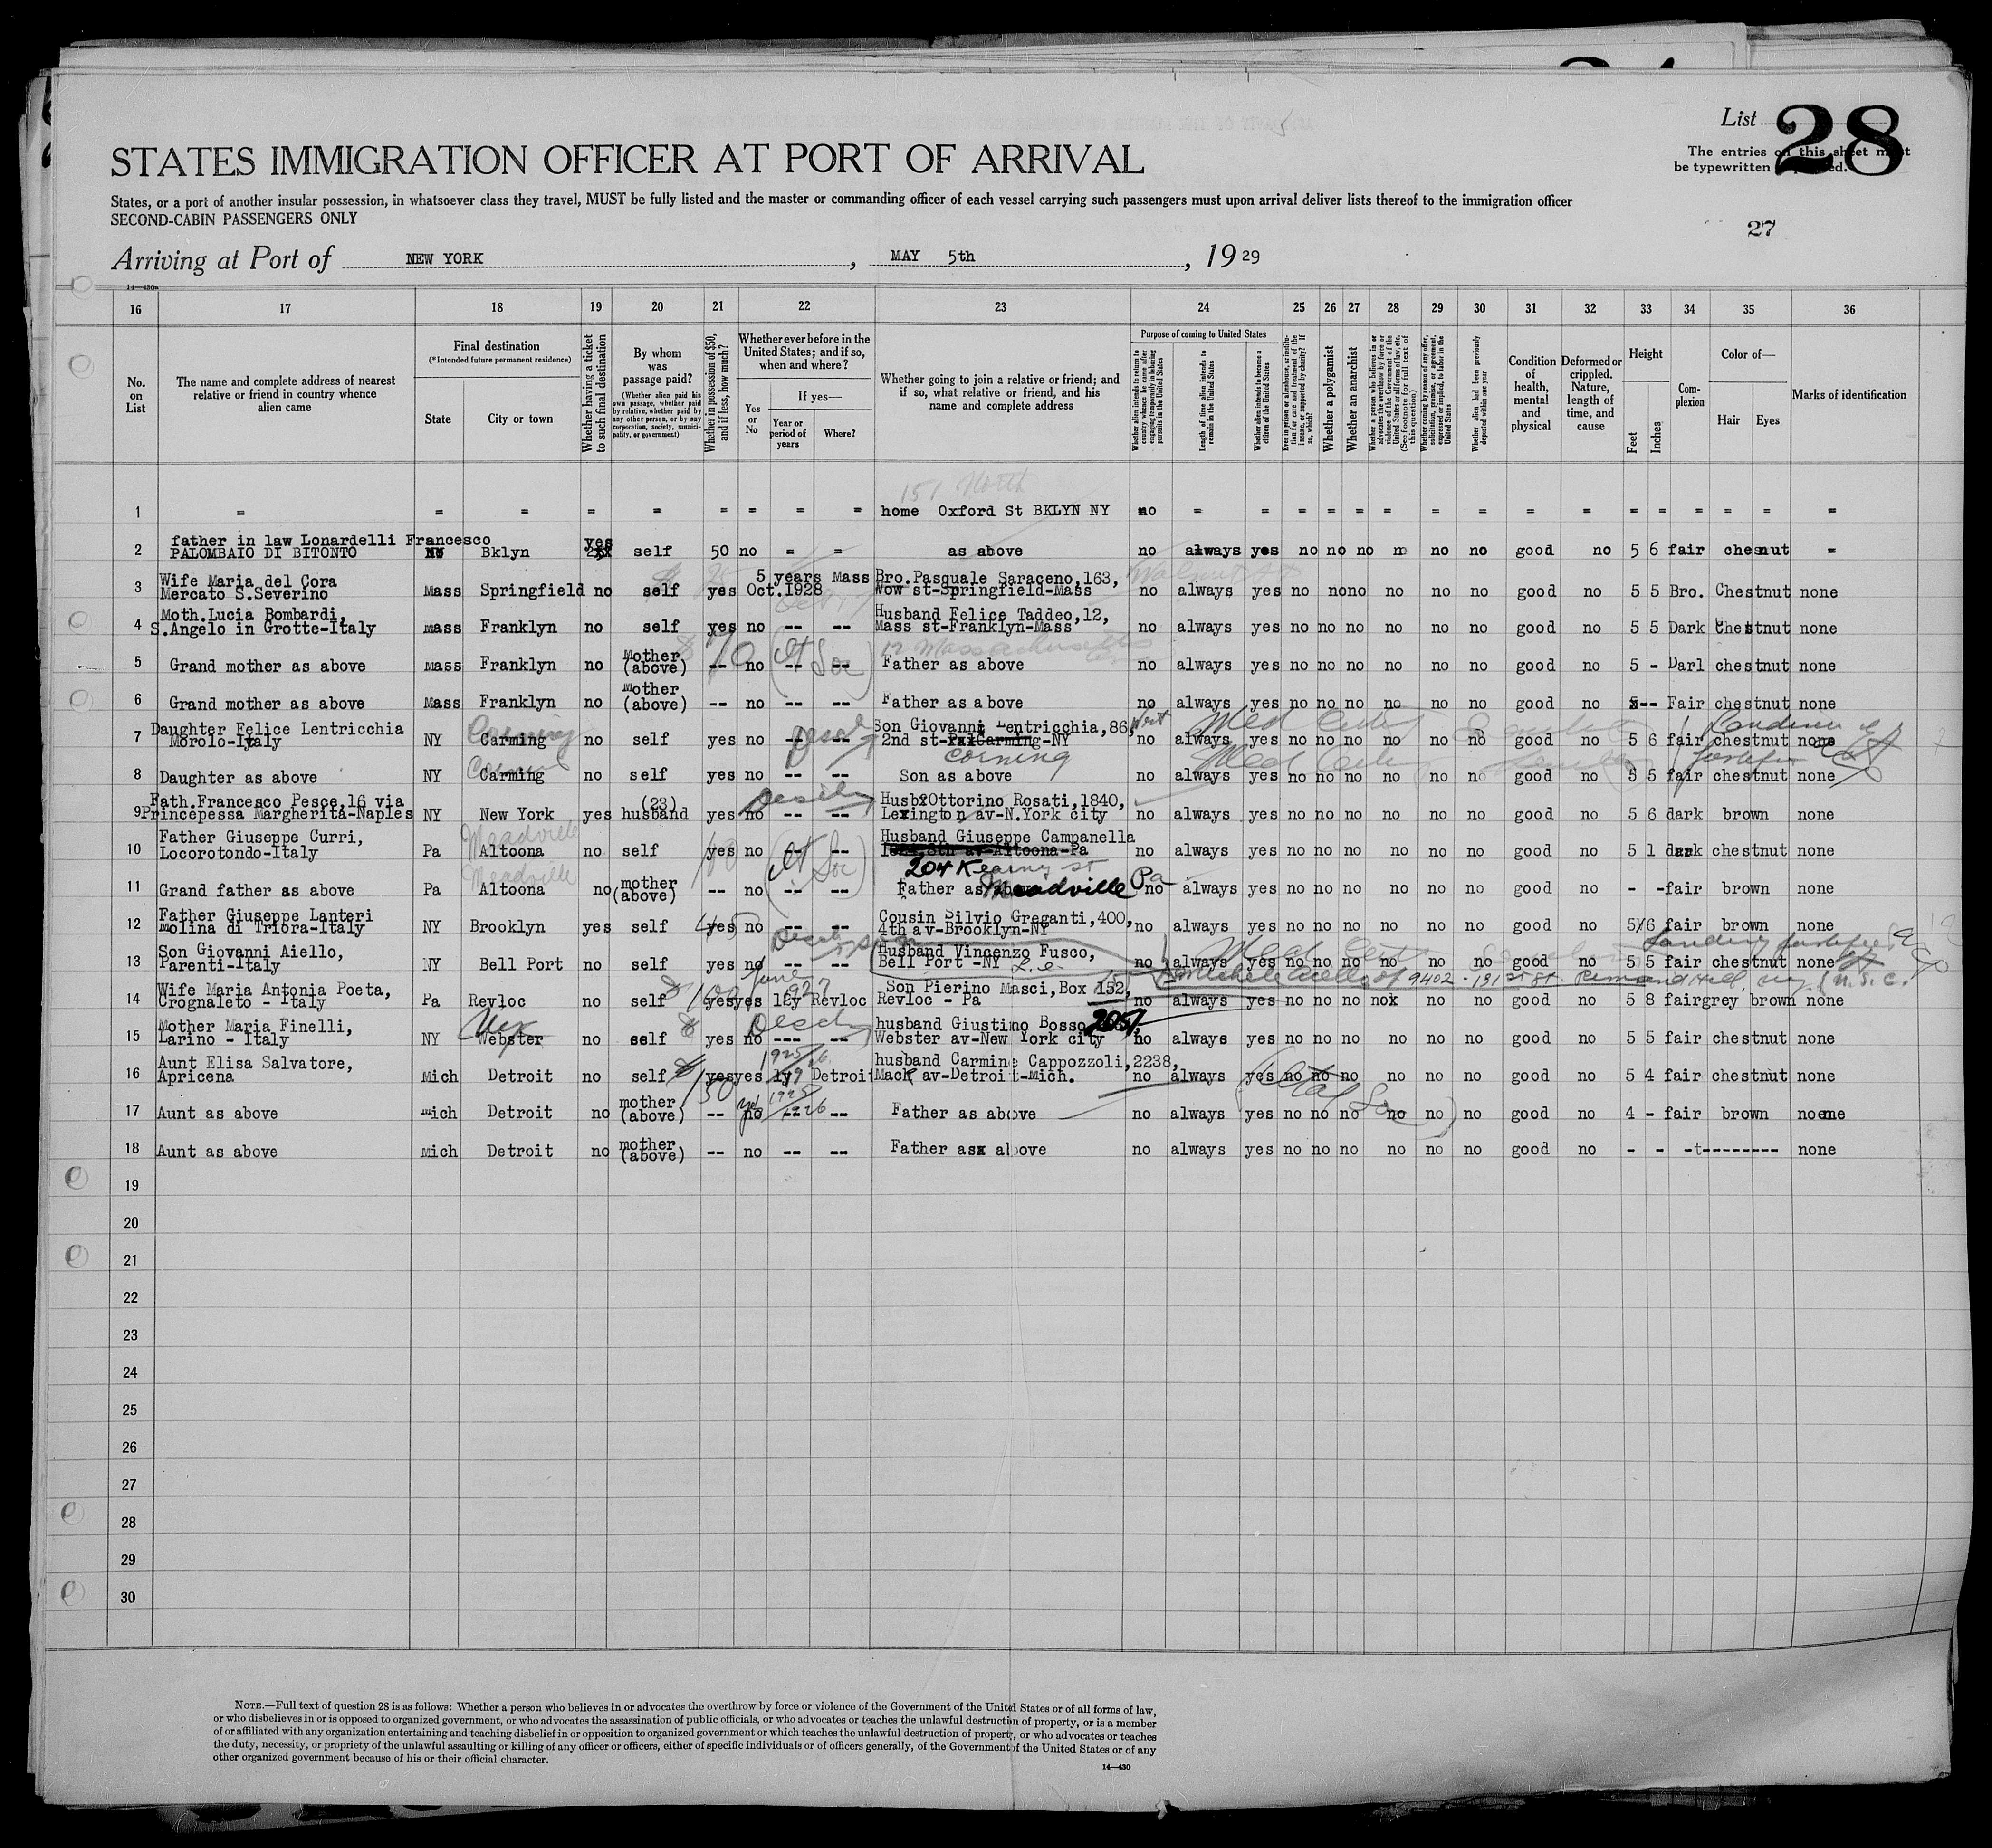 List 28
The entries on this sheet must
be typewritten or printed.
STATES IMMIGRATION OFFICER AT PORT OF ARRIVAL
States, or a port of another insular possession, in whatsoever class they travel, MUST be fully listed and the master or commanding officer of each vessel carrying such passengers must upon arrival deliver lists thereof to the immigration officer
SECOND-CABIN PASSENGERS ONLY
27
Arriving at Port of NEW YORK, MAY 5th, 1929
14—430
16 17 18 19 20 21 22 23 24 25 26 27 28 29 30 31 32 33 34 35 36
No. on List
The name and complete address of nearest relative or friend in country whence alien came
Final destination
(*Intended future permanent residence)
State
City or town
Whether having a ticket to such final destination
By whom was passage paid?
(Whether alien paid his own passage, whether paid by relative, whether paid by any other person, or by any corporation, society, municipality, or government)
Whether in possession of $50, and if less, how much?
Whether ever before in the United States; and if so, when and where?
Yes or No
If yes—
Year or period of years
Where?
Whether going to join a relative or friend; and if so, what relative or friend, and his name and complete address
Purpose of coming to United States
Whether alien intends to return to country whence he came after engaging temporarily in laboring pursuits in the United States
Length of time alien intends to remain in the United States
Whether alien intends to become a citizen of the United States
Ever in prison or almshouse, or institution for care and treatment of the insane, or supported by charity? If so, which?
Whether a polygamist
Whether an anarchist
Whether a person who believes in or advocates the overthrow by force or violence of the Government of the United States or all forms of law, etc. (See footnote for full text of this question)
Whether coming by reason of any offer, solicitation, promise, or agreement, expressed or implied, to labor in the United States
Whether alien had been previously deported within one year
Condition of health, mental and physical
Deformed or crippled. Nature, length of time, and cause
Height
Feet
Inches
Complexion
Color of—
Hair
Eyes
Marks of identification
151 North
1 = = = = = = = = = home Oxford St BKLYN NY no = = = = = = = = = = = = = = = =
father in law Lonardelli Francesco yes
2 PALOMBAIO DI BITONTO NY Bklyn self 50 no = = as above no always yes no no no no no no good no 5 6 fair chesnut =
Wife Maria del Cora 5 years Mass Bro.Pasquale Saraceno,163, Walnut St
3 Mercato S.Severino Mass Springfield no self yes Oct.1928 Wow st-Springfield-Mass no always yes no no no no no no good no 5 5 Bro. Chestnut none
Moth.Lucia Bombardi, Husband Felice Taddeo,12,
4 S.Angelo in Grotte-Italy mass Franklyn no self yes no -- -- Mass st-Franklyn-Mass no always yes no no no no no no good no 5 5 Dark Chestnut none
12 Massachusetts
5 Grand mother as above mass Franklyn no Mother (above) -- no -- -- Father as above no always yes no no no no no no good no 5 - Darl chestnut none
6 Grand mother as above Mass Franklyn no mother (above) -- no -- -- Father as above no always yes no no no no no no good no -- Fair chestnut none
Daughter Felice Lentricchia Corning Son Giovanni Lentricchia,86, West Med Cert
7 Morolo-Italy NY Carming no self yes no -- -- 2nd st-Carming-NY no always yes no no no no no no good no 5 6 fair chestnut none
Corning
8 Daughter as above NY Carming no self yes no -- -- Son as above no always yes no no no no no no good no 5 5 fair chestnut none
Fath.Francesco Pesce,16 via (23) Husb Ottorino Rosati,1840,
9 Princepessa Margherita-Naples NY New York yes husband yes no -- -- Lexington av-N.York city no always yes no no no no no no good no 5 6 dark brown none
Father Giuseppe Curri, Meadville Husband Giuseppe Campanella
10 Locorotondo-Italy Pa Altoona no self yes no -- -- 8th av-Altoona-Pa no always yes no no no no no no good no 5 1 dark chestnut none
Meadville 204 Kearny st
11 Grand father as above Pa Altoona no mother (above) -- no -- -- Father as above Meadville Pa no always yes no no no no no no good no - - fair brown none
Father Giuseppe Lanteri Cousin Silvio Greganti,400,
12 Molina di Triora-Italy NY Brooklyn yes self yes no -- -- 4th av-Brooklyn-NY no always yes no no no no no no good no 5 6 fair brown none
Son Giovanni Aiello, Husband Vincenzo Fusco, Med Cert
13 Parenti-Italy NY Bell Port no self yes no -- -- Bell Port -NY no always yes no no no no no no good no 5 5 fair chestnut none
Wife Maria Antonia Poeta, June 1927 Son Pierino Masci,Box 152, 9402 - 131st St.
14 Crognaleto - Italy Pa Revloc no self yes yes Revloc Revloc - Pa no always yes no no no no no no good no 5 8 fair grey brown none
Mother Maria Finelli, husband Giustino Bosso 2051,
15 Larino - Italy NY Webster no self yes no --- -- Webster av-New York city no always yes no no no no no no good no 5 5 fair chestnut none
Aunt Elisa Salvatore, 1925/26 husband Carmine Cappozzoli,2238,
16 Apricena Mich Detroit no self yes yes Detroit Mack av-Detroit-Mich. no always yes no no no no no no good no 5 4 fair chestnut none
17 Aunt as above mich Detroit no mother (above) -- no 1925 1926 -- Father as above no always yes no no no no no no good no 4 - fair brown none
18 Aunt as above mich Detroit no mother (above) -- no -- -- Father as above no always yes no no no no no no good no - - -t-------- none
19
20
21
22
23
24
25
26
27
28
29
30
NOTE.—Full text of question 28 is as follows: Whether a person who believes in or advocates the overthrow by force or violence of the Government of the United States or of all forms of law,
or who disbelieves in or is opposed to organized government, or who advocates the assassination of public officials, or who advocates or teaches the unlawful destruction of property, or is a member
of or affiliated with any organization entertaining and teaching disbelief in or opposition to organized government or which teaches the unlawful destruction of property, or who advocates or teaches
the duty, necessity, or propriety of the unlawful assaulting or killing of any officer or officers, either of specific individuals or of officers generally, of the Government of the United States or of any
other organized government because of his or their official character.
14—430